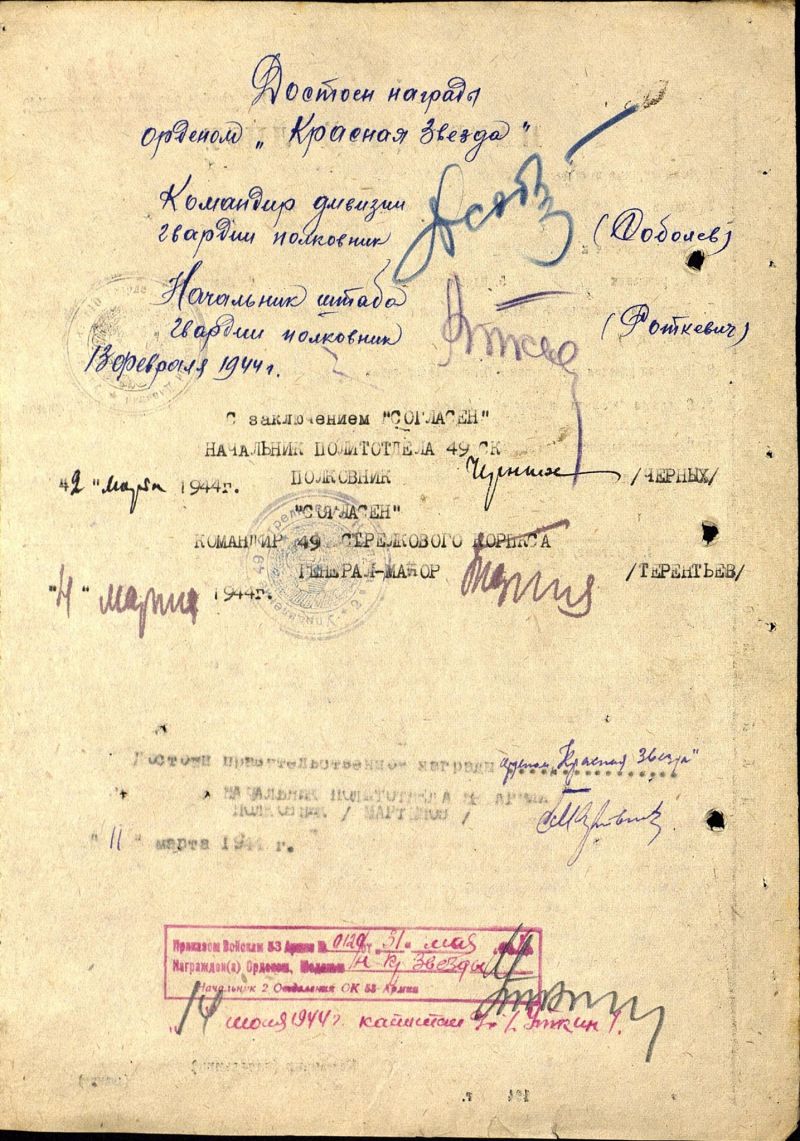 Достоен награды
орденом „Красная Звезда"
Командир дивизии
гвардии полковник (Соболев)
Начальник штаба
гвардии полковник (Роткевич)
13 февраля 1944 г.
С заключением "СОГЛАСЕН"
НАЧАЛЬНИК ПОЛИТОТДЕЛА 49 СК
"2" марта 1944г. ПОЛКОВНИК /ЧЕРНЫХ/
"СОГЛАСЕН"
КОМАНДИР 49 СТРЕЛКОВОГО КОРПУСА
ГЕНЕРАЛ-МАЙОР /ТЕРЕНТЬЕВ/
"4" марта 1944г.
Достоин правительственной награды орденом „Красная Звезда"
НАЧАЛЬНИК ПОЛИТОТДЕЛА АРМИИ
ПОЛКОВНИК / МАРТЫНОВ /
"11" марта 1944 г.
Приказом Войскам 53 Армии № 0120 от 31. мая
Награжден(а) Орденом, Медалью Кр Звезды
Начальник 2 Отделения ОК 53 Армии
14 июля 1944 г. капитан /Уткин/.